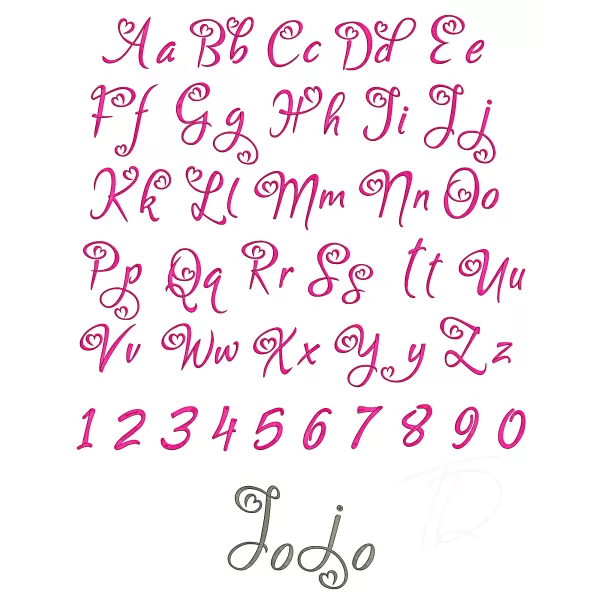 Aa Bb Cc Dd Ee
Ff Gg Hh Ii Jj
Kk Ll Mm Nn Oo
Pp Qq Rr Ss tt Uu
Vv Ww Xx Yy Zz
1 2 3 4 5 6 7 8 9 0
TD
Jojo